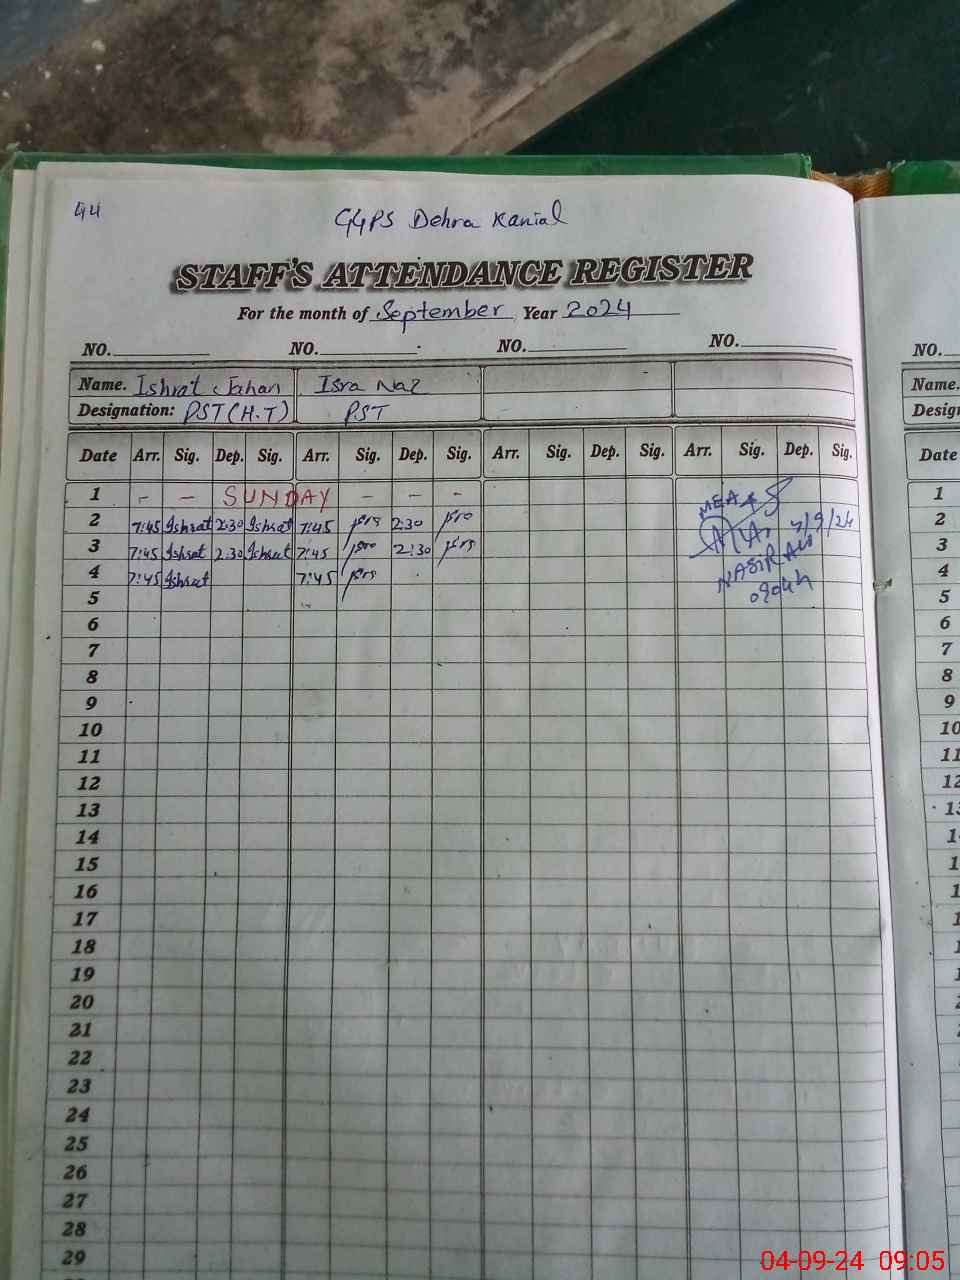 44
GGPS Dehra Kanial
STAFF'S ATTENDANCE REGISTER
For the month of September Year 2024
NO. NO. NO. NO.
Name. Ishrat Jahan Isra Naz
Designation: PST (H.T) PST
Date Arr. Sig. Dep. Sig. Arr. Sig. Dep. Sig. Arr. Sig. Dep. Sig. Arr. Sig. Dep. Sig.
1 - - SUNDAY - - -
2 7:45 Ishrat 2:30 Ishrat 7:45 2:30
3 7:45 Ishrat 2:30 Ishrat 7:45 2:30
4 7:45 Ishrat 7:45
5
6
7
8
9
10
11
12
13
14
15
16
17
18
19
20
21
22
23
24
25
26
27
28
29
MEA
NASIR Ali
NO.
Name.
Desig
Date
1
2
3
4
5
6
7
8
9
10
11
12
04-09-24 09:05